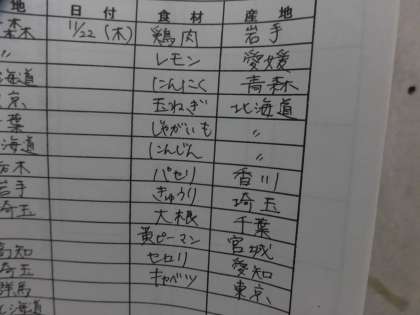 地 日付 食材 産地
11/22(木) 鶏肉 岩手
〃 レモン 愛媛
海道 にんにく 青森
京 玉ねぎ 北海道
葉 じゃがいも 〃
海道 にんじん 〃
木 パセリ 香川
岩手 きゅうり 埼玉
埼玉 大根 千葉
黄ピーマン 宮城
高知 セロリ 愛知
埼玉 キャベツ 東京
群馬
北海道